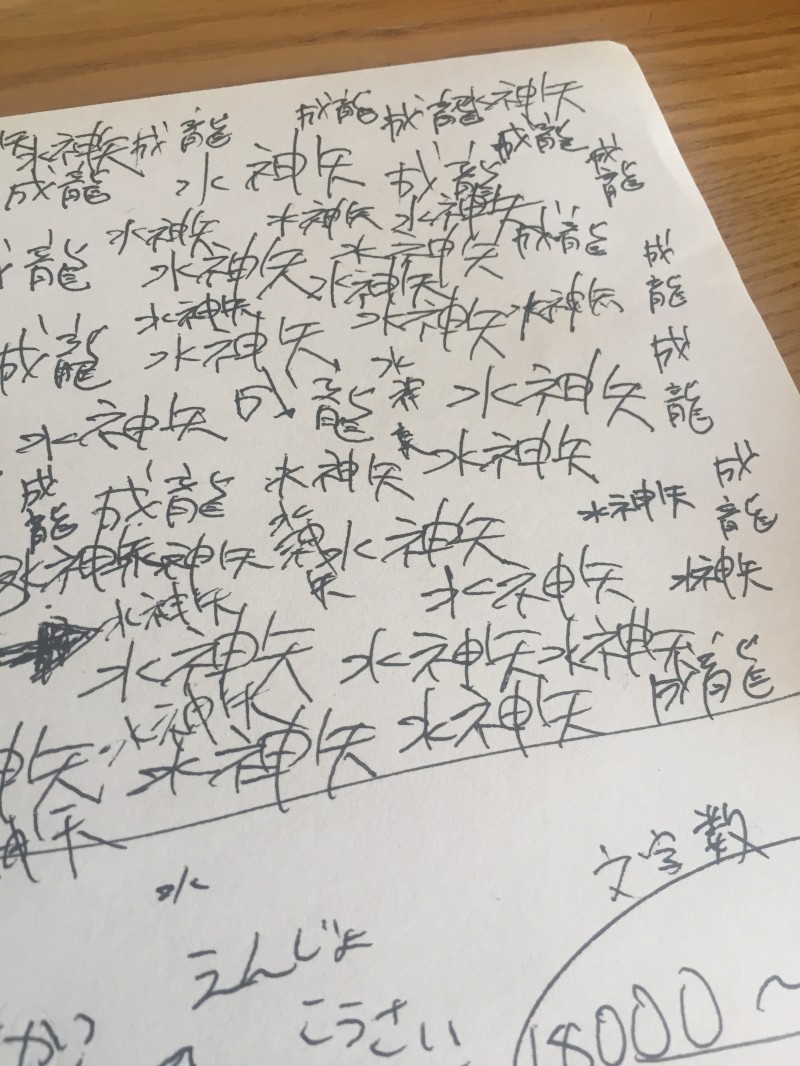 成龍 成龍 水神矢
水神矢 成龍 成龍 成龍
成龍 水 神矢 成龍
水神矢 水神矢 水神矢
成龍 水神矢 水神矢 成龍 成龍
水神矢 水神矢
水神矢 水神矢 水神矢
成龍 水神矢 水 成龍
水神矢 成龍 水神矢
成龍 成龍 水神矢 水神矢
水神矢 水神矢 成龍
水神矢 神矢 水神矢 水神矢
水神矢 水神矢
水神矢 水神矢 水神矢
水神矢 成龍
神矢 水神矢 水神矢
水
文字数
えんじょ
こうさい
18000~